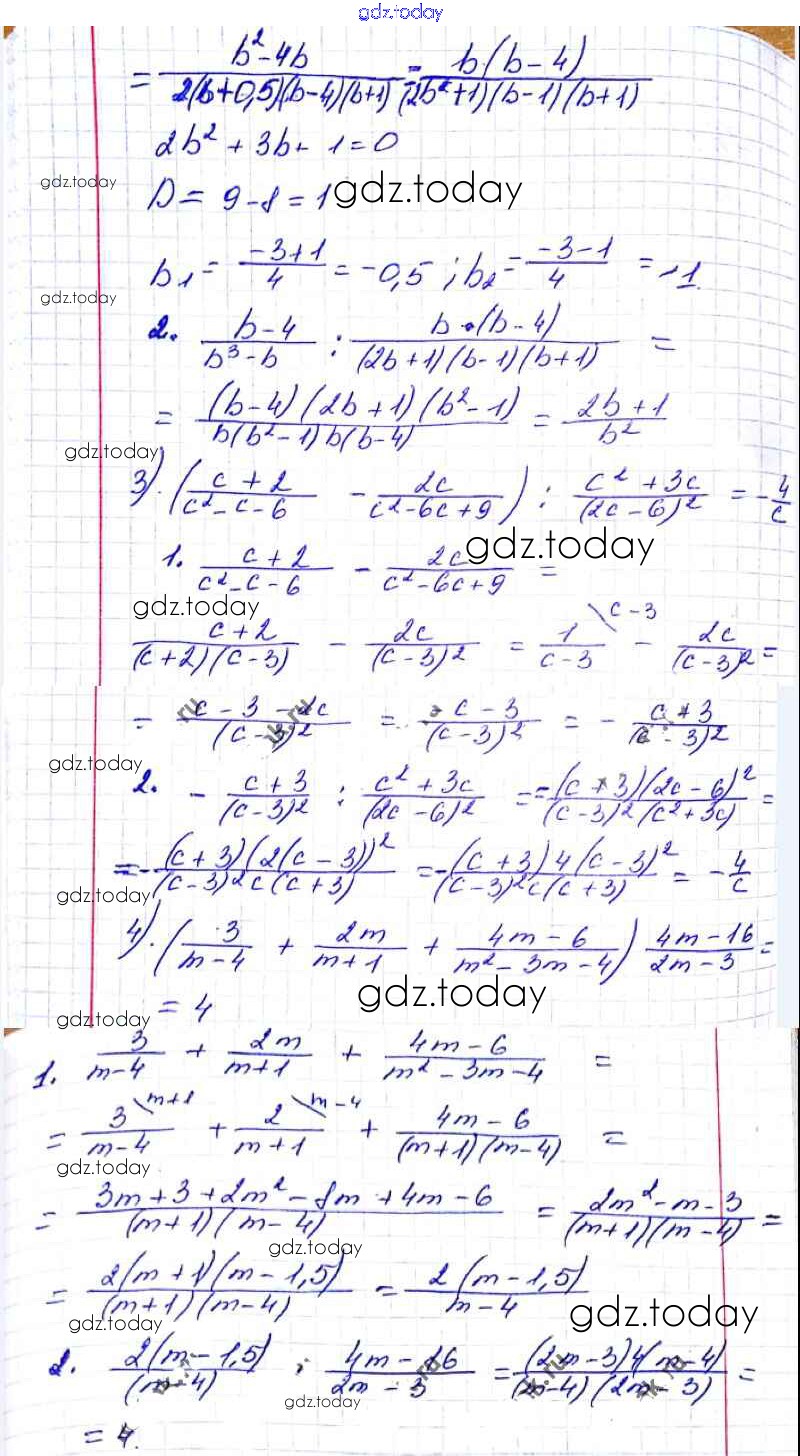 gdz.today
= (b² - 4b)/(2(b+0,5)(b-4)(b+1)) = b(b-4)/((2b²+1)(b-1)(b+1))
2b² + 3b + 1 = 0
gdz.today
D = 9 - 8 = 1 gdz.today
b₁ = (-3+1)/4 = -0,5 ; b₂ = (-3-1)/4 = -1
gdz.today
2. (b-4)/(b³-b) : b·(b-4)/((2b+1)(b-1)(b+1)) =
= (b-4)(2b+1)(b²-1)/(b(b²-1)b(b-4)) = (2b+1)/b²
gdz.today
3). ((c+2)/(c²-c-6) - 2c/(c²-6c+9)) : (c²+3c)/(2c-6)² = -4/c
gdz.today
1. (c+2)/(c²-c-6) - 2c/(c²-6c+9) =
gdz.today
(c+2)/((c+2)(c-3)) - 2c/(c-3)² = 1/(c-3) \c-3 - 2c/(c-3)² =
= (c-3-2c)/(c-3)² = (-c-3)/(c-3)² = -(c+3)/(c-3)²
gdz.today
2. -(c+3)/(c-3)² : (c²+3c)/(2c-6)² = -(c+3)(2c-6)²/((c-3)²(c²+3c)) =
= -(c+3)(2(c-3))²/((c-3)²c(c+3)) = -(c+3)4(c-3)²/((c-3)²c(c+3)) = -4/c
gdz.today
4). (3/(m-4) + 2m/(m+1) + (4m-6)/(m²-3m-4)) (4m-16)/(2m-3) =
gdz.today
= 4
gdz.today
1. 3/(m-4) + 2m/(m+1) + (4m-6)/(m²-3m-4) =
= 3/(m-4) \m+1 + 2/(m+1) \m-4 + (4m-6)/((m+1)(m-4)) =
gdz.today
= (3m+3+2m²-8m+4m-6)/((m+1)(m-4)) = (2m²-m-3)/((m+1)(m-4)) =
gdz.today
= 2(m+1)(m-1,5)/((m+1)(m-4)) = 2(m-1,5)/(m-4)
gdz.today
gdz.today
2. 2(m-1,5)/(m-4) : (4m-16)/(2m-3) = (2m-3)4(m-4)/((m-4)(2m-3)) =
gdz.today
= 4.